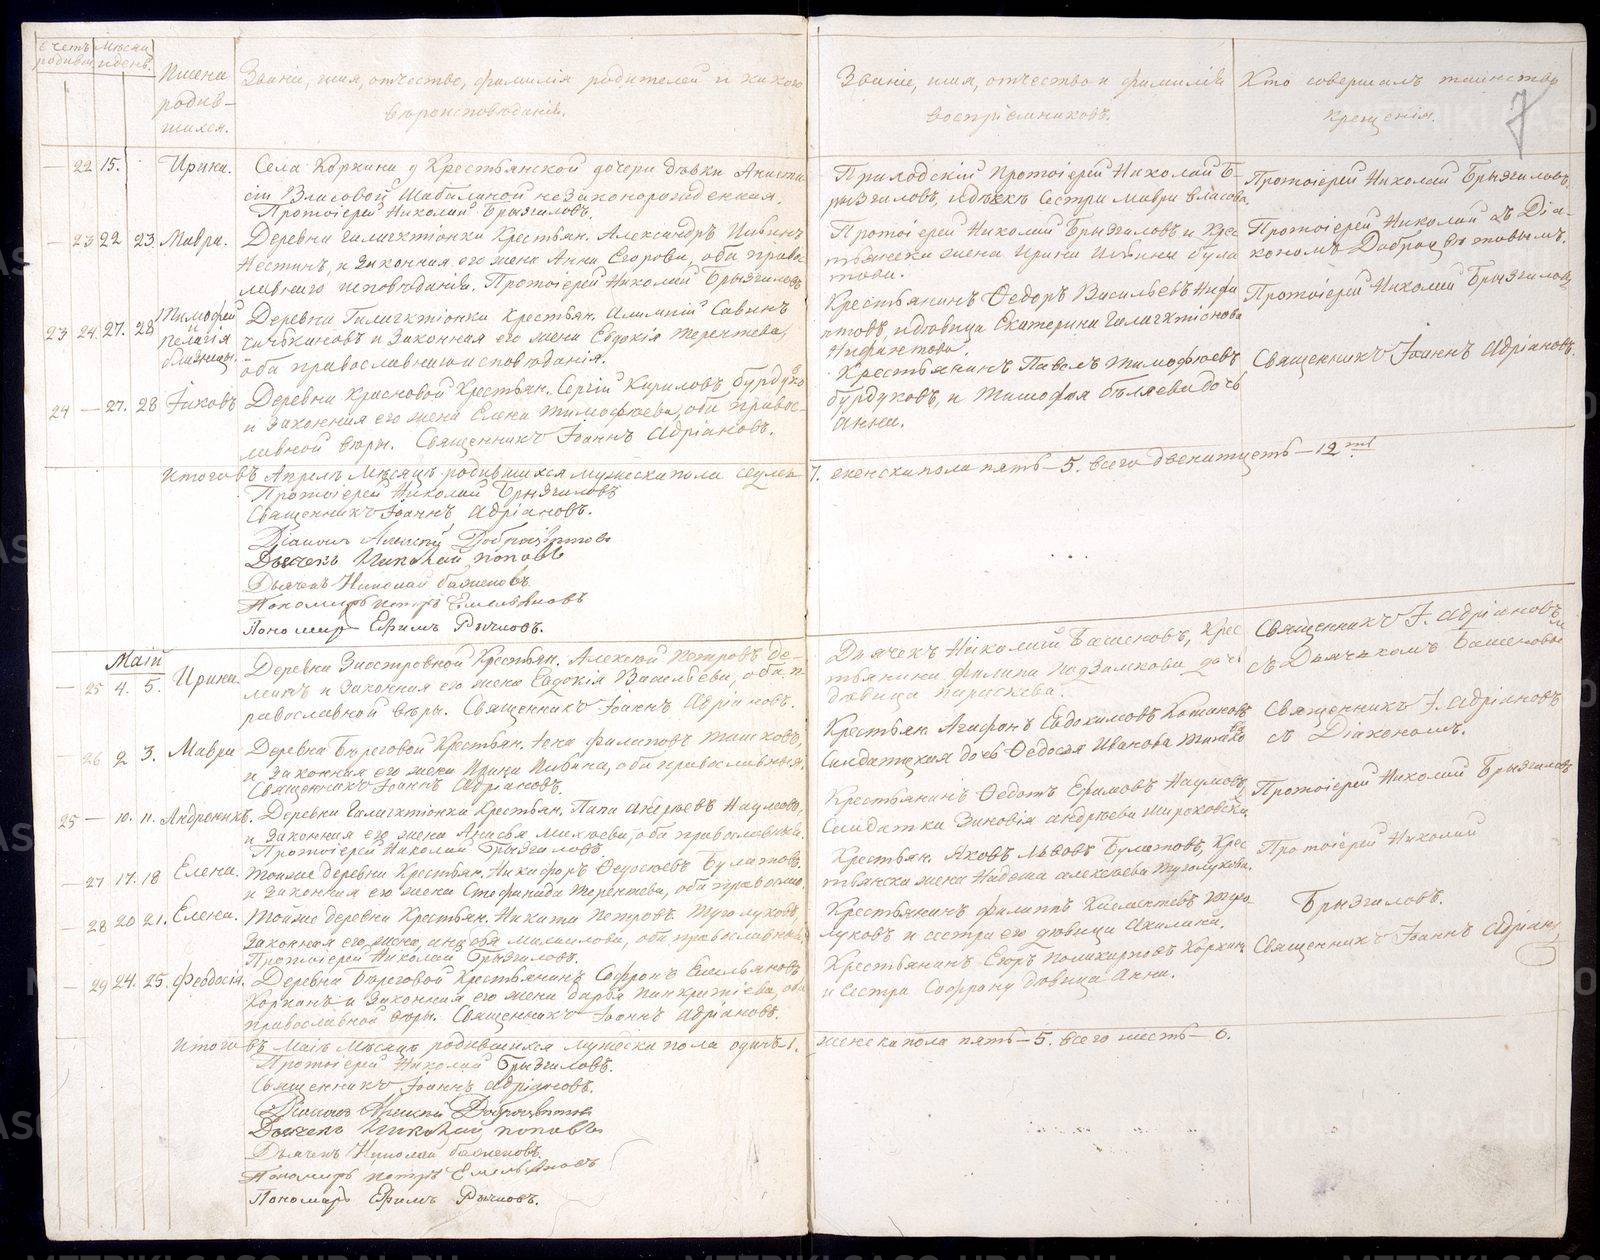 Счетъ родивш.
Мѣсяц. и день.
Имена родив-
шихся.
Званіе, имя, отчество, фамилія родителей и какого
вѣроисповѣданія.
Званіе, имя, отчество и фамилія
воспріемниковъ.
Кто совершалъ таинство
крещенія.
7
— 22 15. Ирина.
Села Коркина у Крестьянской дочери дѣвки Анаста
сіи Власовой Шабалиной незаконорожденная.
Протоіерей Николай Брызгаловъ.
Приходскій Протоіерей Николай Б-
рызгаловъ, и дѣвка сестра Мавра Власова.
Протоіерей Николай Брызгаловъ.
— 23 22 23 Мавра.
Деревни Галактіонки Крестьян. Александръ
и законная его жена Анна Егорова, оба право
славнаго исповѣданія. Протоіерей Николай Брызгаловъ
Протоіерей Николай Брызгаловъ и Крес
тьянска жена Ирина
Протоіерей Николай съ Діа-
кономъ Доброцвѣтовымъ.
23 24 27. 28 Тимофей
и
Пелагія
близнецы.
Деревни Галактіонки Крестьян. Савинъ
и законная его жена Евдокія Терентева,
оба православнаго исповѣданія.
Крестьянинъ Федоръ Васильевъ Нифа
нтовъ, и дѣвица Екатерина Галактіонова
Нифантова.
Протоіерей Николай Брызгаловъ
24 — 27. 28 Іаковъ
Деревни Красновой Крестьян. Сергій Кириловъ Бурдуко
и законная его жена Елена Тимофѣева, оба правос-
лавной вѣры. Священникъ Іоаннъ Адріановъ.
Крестьянинъ Павелъ Тимофѣевъ
Бурдуковъ, и Тимофея Бѣляева дочь
Анна.
Священникъ Іоаннъ Адріановъ.
Итого въ Апрелѣ Мѣсяцѣ родившихся мужеска пола седмь — 7. женска пола пять — 5. всего двенатцеть — 12ть
Протоіерей Николай Брызгаловъ
Священникъ Іоаннъ Адріановъ.
Діаконъ Алексей Доброцвѣтовъ
Дьячекъ Николай Поповъ
Дьячекъ Николай Баженовъ.
Пономарь Петръ Емельяновъ
Пономарь Ефимъ Рычковъ.
Маій
— 25 4. 5. Ирина
Деревни Заостровной Крестьян. Алексѣй Петровъ Бе-
и законная его жена Евдокія Васильева, оба п
равославной вѣры. Священникъ Іоаннъ Адріановъ.
Дьячекъ Николай Баженовъ, Крес
тьянина Филипа Подзамкова дочь
дѣвица Параскева.
Священникъ І. Адріановъ
съ Дьячькомъ Баженовымъ
— 26 2 3. Мавра
Деревни Береговой Крестьян. Іона Филиповъ Ташковъ,
и законная его жена Ирина, оба православныя.
Священникъ Іоаннъ Адріановъ.
Крестьян. Агафонъ Евдокимовъ
Салдатская дочь Федосья Иванова
Священникъ І. Адріановъ
съ Діакономъ.
25 — 10. 11. Андроникъ.
Деревни Галактіонки Крестьян. Папа Андреевъ Наумовъ,
и законная его жена Михеева, оба православныя.
Протоіерей Николай Брызгаловъ.
Крестьянинъ Федотъ Ефимовъ Наумовъ,
Салдатка Зиновія Андреева
Протоіерей Николай Брызгаловъ
— 27 17. 18 Елена.
Тойже деревни Крестьян. Никифоръ Федосѣевъ Булатовъ.
и законная его жена Стефанида Терентева, оба православ.
Крестьян. Яковъ Львовъ Булатовъ, Крес
тьянска жена Надежда Алексѣева Туголукова.
Протоіерей Николай
— 28 20 21. Елена.
Тойже деревни Крестьян. Никита Петровъ Туголуковъ,
законная его жена Михаилова, оба православныя.
Протоіерей Николай Брызгаловъ.
Крестьянинъ Филиппъ Туго
луковъ и сестра его дѣвица Акилина.
Брызгаловъ.
— 29 24. 25. Феодосія.
Деревни Береговой Крестьянинъ Софронъ Емельяновъ
Коркинъ и законная его жена Варвара Панкратіева, оба
православной вѣры. Священникъ Іоаннъ Адріановъ.
Крестьянинъ Поликарповъ Коркин
и сестра Софрону дѣвица Анна.
Священникъ Іоаннъ Адріан
Итого въ Маіѣ Мѣсяцѣ родившихся мужеска пола одинъ — 1. женска пола пять — 5. всего шесть — 6.
Протоіерей Николай Брызгаловъ.
Священникъ Іоаннъ Адріановъ.
Діаконъ Алексей Доброцвѣтовъ
Дьячекъ Николай Поповъ
Дьячекъ Николай Баженовъ.
Пономарь Петръ Емельяновъ
Пономарь Ефимъ Рычковъ.